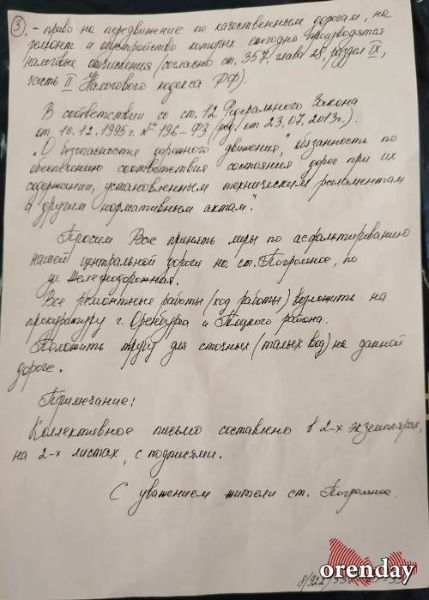 ③ - право на передвижение по качественным дорогам, на
ремонт и обустройство которых ежегодно производятся
налоговые отчисления (согласно ст. 357 глава 28, раздел IX,
часть II Налогового кодекса РФ)
В соответствии со ст. 12 Федерального Закона
от 10.12.1995г. № 196-ФЗ (ред. от 23.07.2013г.)
"О безопасности дорожного движения", "обязанность по
обеспечению соответствия состояния дорог при их
содержании, установленным техническим регламентам
и другим нормативным актам".
Просим Вас принять меры по асфальтированию
нашей центральной дороги на ст. Погромное, по
ул. Железнодорожная.
Все ремонтные работы (ход работы) возложить на
прокуратуру г. Оренбурга и Тоцкого района.
Положить трубу для сточных (талых вод) на данной
дороге.
Примечание:
Коллективное письмо составлено в 2-х экземплярах,
на 2-х листах, с подписями.
С уважением жители ст. Погромное.
orenday